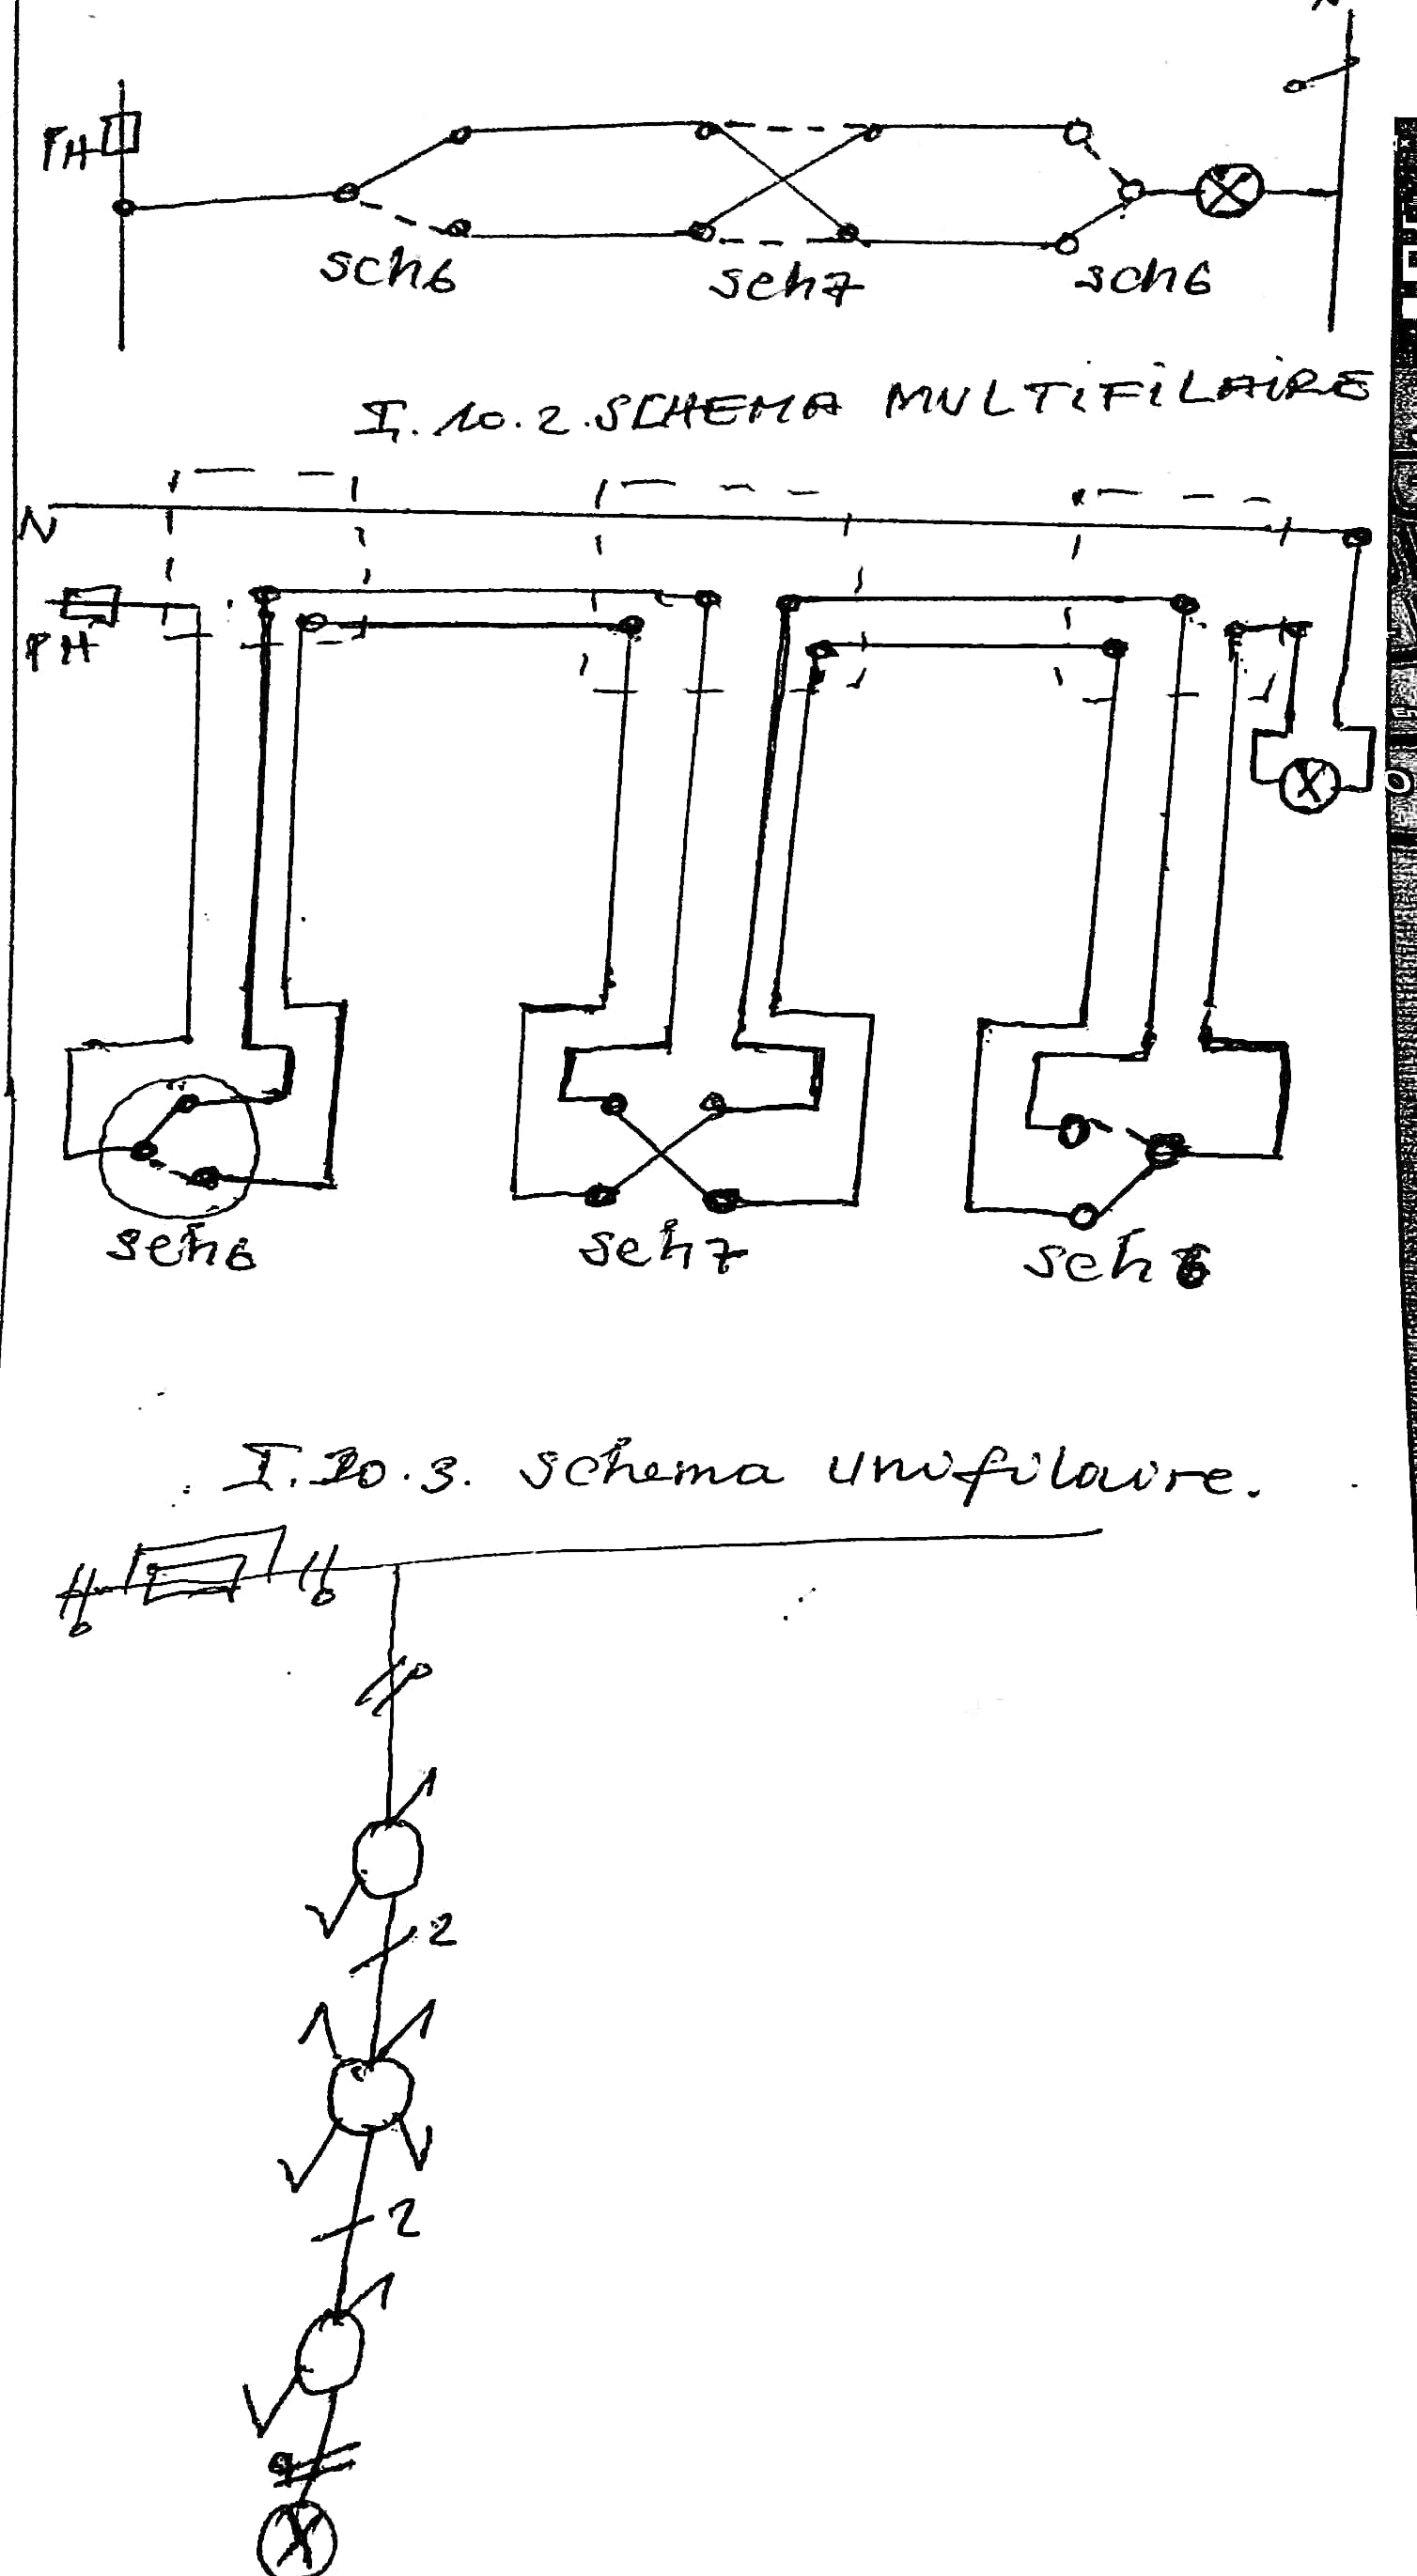 N
PH
sch6 sch7 sch6
I.10.2.SCHEMA MULTIFILAIRE
N
PH
sch6 sch7 sch6
I.10.3. schema unifilaire.
2
2